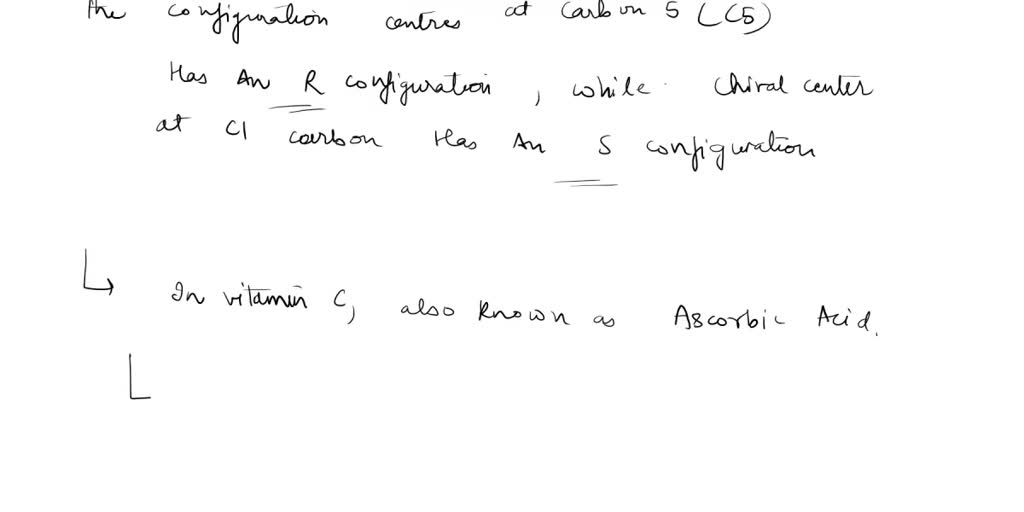 the configuration centres at Carbon 5 (C5)
Has An R configuration, while Chiral center
at C1 carbon Has An S configuration
In vitamin C, also known as Ascorbic Acid.